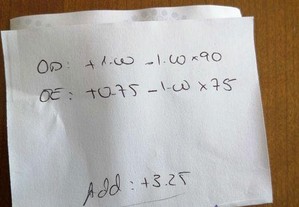 OD: +1.00 -1.00 x 90
OE: +0.75 -1.00 x 75
Add: +3.25